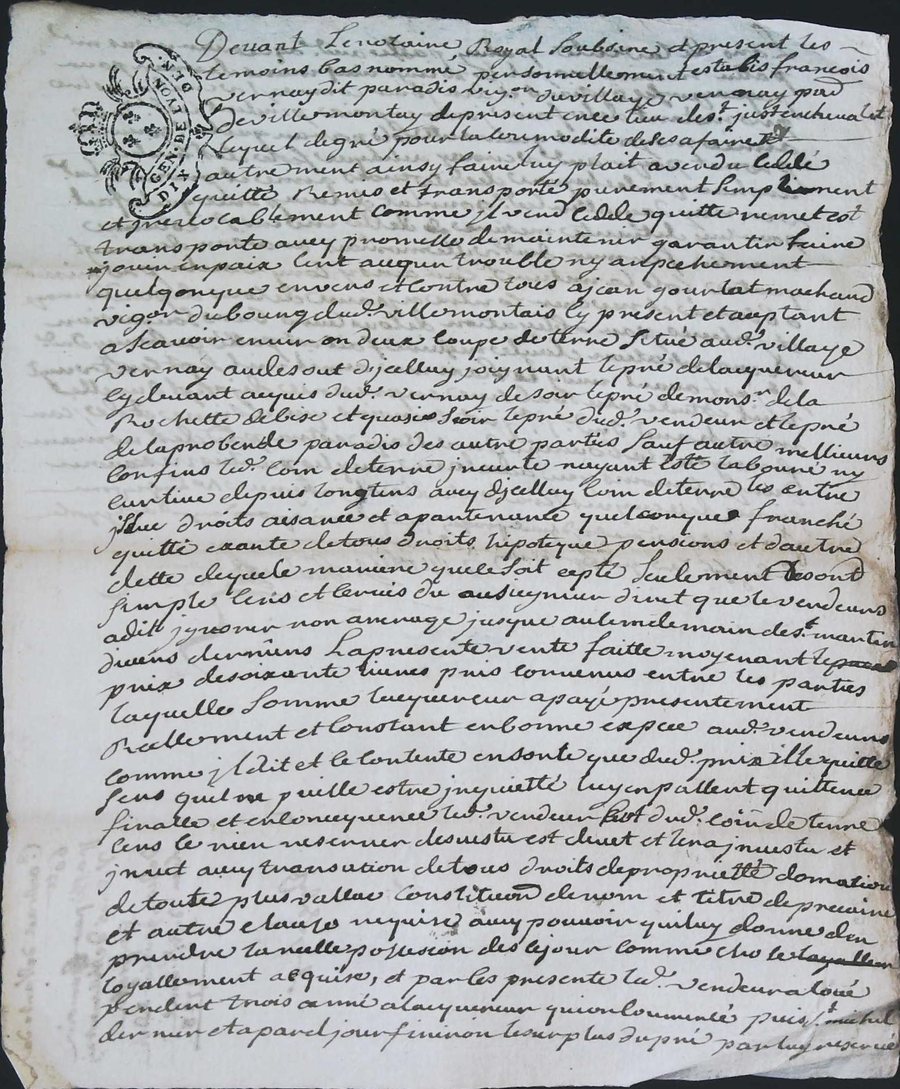 GEN. DE LYON
DIX DEN.
Devant Le notaire Royal Soubsine et present les
temoins bas nommé personnellement establis francois
vernay dit paradis vigon du village vernay pad
de villemontay de present en ce lieu de st just en chevalet
lequel de gré pour la comodite de ses afaire et
autrement ainsy faire luy plait a vendu cedde
quitte Remis et transporte purement simpliment
et jrrevocablement comme jl vend cedde quitte remet et
transporte avey promesse de maintenir garantir faire
jouir en paix sent auqun trouble ny anpechement
quelqonque envers et contre tous a jean gourlat machand
vigon du bourg dud. villemontais cy present et aceptant
a scavoir environ deux coupe de terre scitué aud. village
vernay au desout dicelluy joignant le pré de lacquereur
cy devant acquis dud. vernay de soir le pré de monsr de la
Rochette de bise et quasy soir le pré dud. vendeur et le pré
de la probende paradis des autre parties sauf autre mellieurs
confins led. coin de terre jnculte nayant esté labouré ny
cultivé depuis longtens avey djcelluy coin de terre les entre
jssue droits aisance et apartenance quelconque franche
quitte exante de tous droits hipoteque pensions et dautre
dette de quele maniere que ce soit cepte seulement
simple cens et servis du au seigneur direct que le vendeurs
a dit jgnorer non arerage jusque au lendemain de st martin
divers derniers La presente vente faitte moyenant le
prix de soixante livres pris convenus entre les parties
laquelle somme lacquereur a payé presentement
Reellement et Constant en bonne espece aud. vendeurs
comme jl dit et se contente en sorte que dud. prix jl lexquille
sens quil ne puisse estre jnquietté luy en passent quittence
finalle et en consequence led. vendeur dud. coin de terre
sens se rien reserver desvestu est devet et sera jnvestu et
jnvet avey transation de tous droits de proprietté domation
de toute plus vallue constitution de nom et titre de precaire
et autre clause requise avey pouvoir qui luy donne den
prendre la reelle possesion des ce jour comme chose
loyallement acquise, et par les presente led. vendeur a loué
pendent trois anné a lacquereur qui on commencé puis st michel
dernier et a pareil jour finiron le surplus du pré par luy reservé